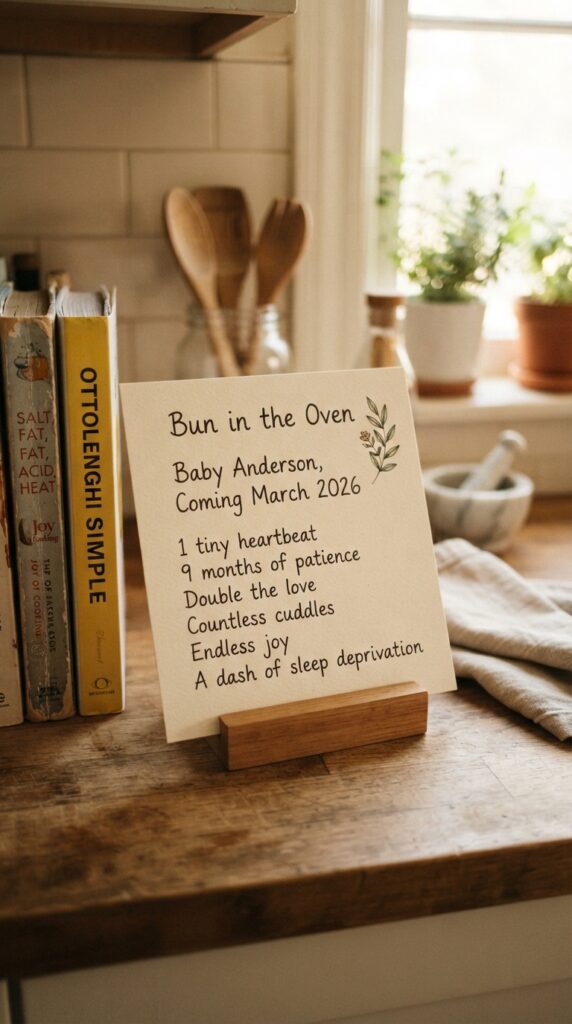 SALT,
FAT,
FAT,
ACID,
HEAT
Joy
JOY OF COOKING
OTTOLENGHI SIMPLE
Bun in the Oven
Baby Anderson,
Coming March 2026
1 tiny heartbeat
9 months of patience
Double the love
Countless cuddles
Endless joy
A dash of sleep deprivation